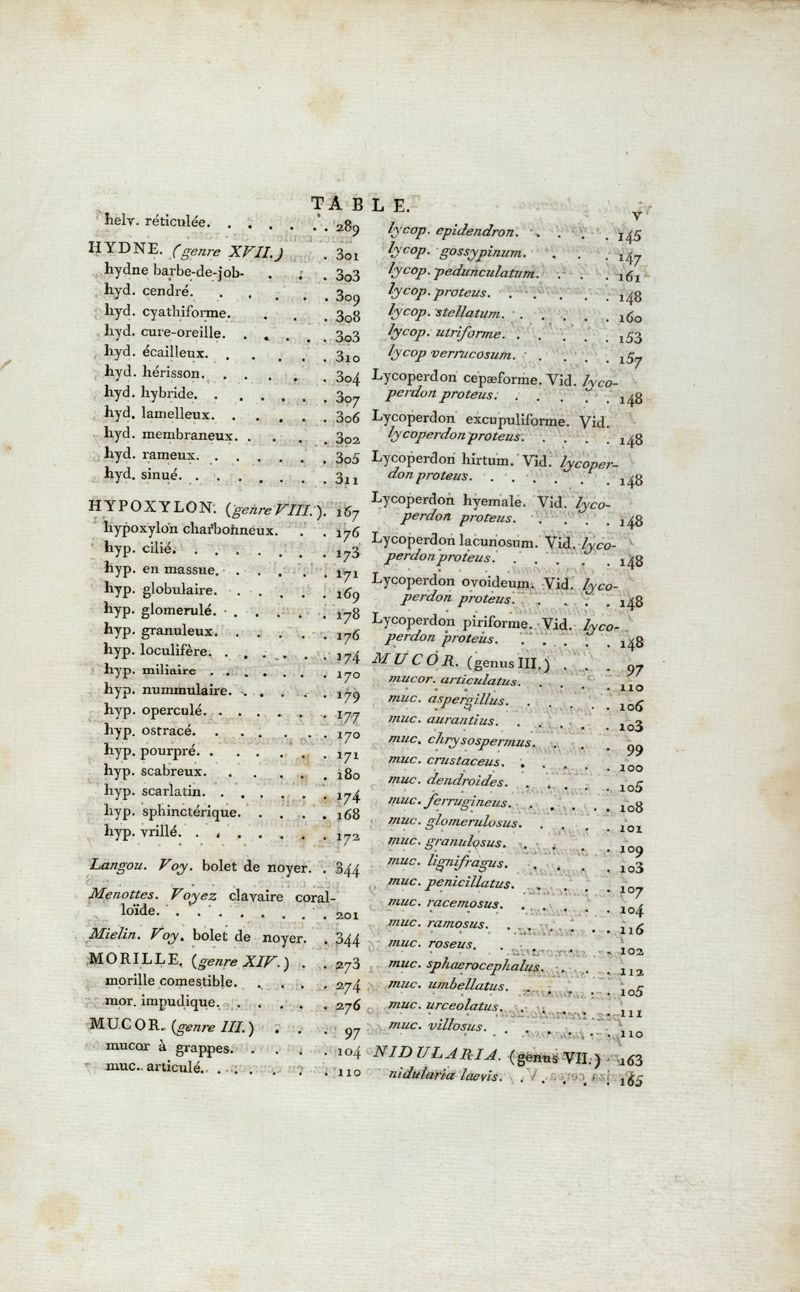 TABLE.
v
helv. réticulée. . . . . . . 289
HYDNE. (genre XVII.) . 301
hydne barbe-de-job. . . . 303
hyd. cendré. . . . . . . 309
hyd. cyathiforme. . . . 308
hyd. cure-oreille. . . . . . 303
hyd. écailleux. . . . . . . 310
hyd. hérisson. . . . . . . 304
hyd. hybride. . . . . . . 307
hyd. lamelleux. . . . . . 306
hyd. membraneux. . . . . 302
hyd. rameux. . . . . . . 305
hyd. sinué. . . . . . . . 311
HYPOXYLON. (genre VIII.). 167
hypoxylon charbonneux. . . 176
hyp. cilié. . . . . . . . 173
hyp. en massue. . . . . . 171
hyp. globulaire. . . . . . 169
hyp. glomerulé. . . . . . . 178
hyp. granuleux. . . . . . 176
hyp. loculifère. . . . . . . 174
hyp. miliaire . . . . . . . 170
hyp. nummulaire. . . . . . 179
hyp. operculé. . . . . . . 177
hyp. ostracé. . . . . . . 170
hyp. pourpré. . . . . . . 171
hyp. scabreux. . . . . . 180
hyp. scarlatin. . . . . . . 174
hyp. sphinctérique. . . . . 168
hyp. vrillé. . . . . . . . 172
Langou. Voy. bolet de noyer. . 344
Menottes. Voyez clavaire coral-
loïde. . . . . . . . . 201
Mielin. Voy. bolet de noyer. . 344
MORILLE. (genre XIV.) . . 273
morille comestible. . . . . 274
mor. impudique. . . . . . 276
MUCOR. (genre III.) . . . 97
mucor à grappes. . . . . 104
muc. articulé. . . . . . . 110
lycop. epidendron. . . . . 145
lycop. gossypinum. . . . 147
lycop. pedunculatum. . . . 161
lycop. proteus. . . . . . 148
lycop. stellatum. . . . . . 160
lycop. utriforme. . . . . . 153
lycop verrucosum. . . . . 157
Lycoperdon cepæforme. Vid. lyco-
perdon proteus. . . . . . 148
Lycoperdon excupuliforme. Vid.
lycoperdon proteus. . . . . 148
Lycoperdon hirtum. Vid. lycoper-
don proteus. . . . . . . 148
Lycoperdon hyemale. Vid. lyco-
perdon proteus. . . . . 148
Lycoperdon lacunosum. Vid. lyco-
perdon proteus. . . . . . 148
Lycoperdon ovoideum. Vid. lyco-
perdon proteus. . . . . 148
Lycoperdon piriforme. Vid. lyco-
perdon proteus. . . . . . 148
MUCOR. (genus III.) . . . 97
mucor. articulatus. . . . . 110
muc. aspergillus. . . . . . 106
muc. aurantius. . . . . . 103
muc. chrysospermus. . . . 99
muc. crustaceus. . . . . . 100
muc. dendroides. . . . . . 105
muc. ferrugineus. . . . . . 108
muc. glomerulosus. . . . . 101
muc. granulosus. . . . . . 109
muc. lignifragus. . . . . . 103
muc. penicillatus. . . . . . 107
muc. racemosus. . . . . . 104
muc. ramosus. . . . . . . 116
muc. roseus. . . . . . . 102
muc. sphaerocephalus. . . . 112
muc. umbellatus. . . . . . 105
muc. urceolatus. . . . . . 111
muc. villosus. . . . . . . 110
NIDULARIA. (genus VII.) 163
nidularia laevis. . . . . . 165